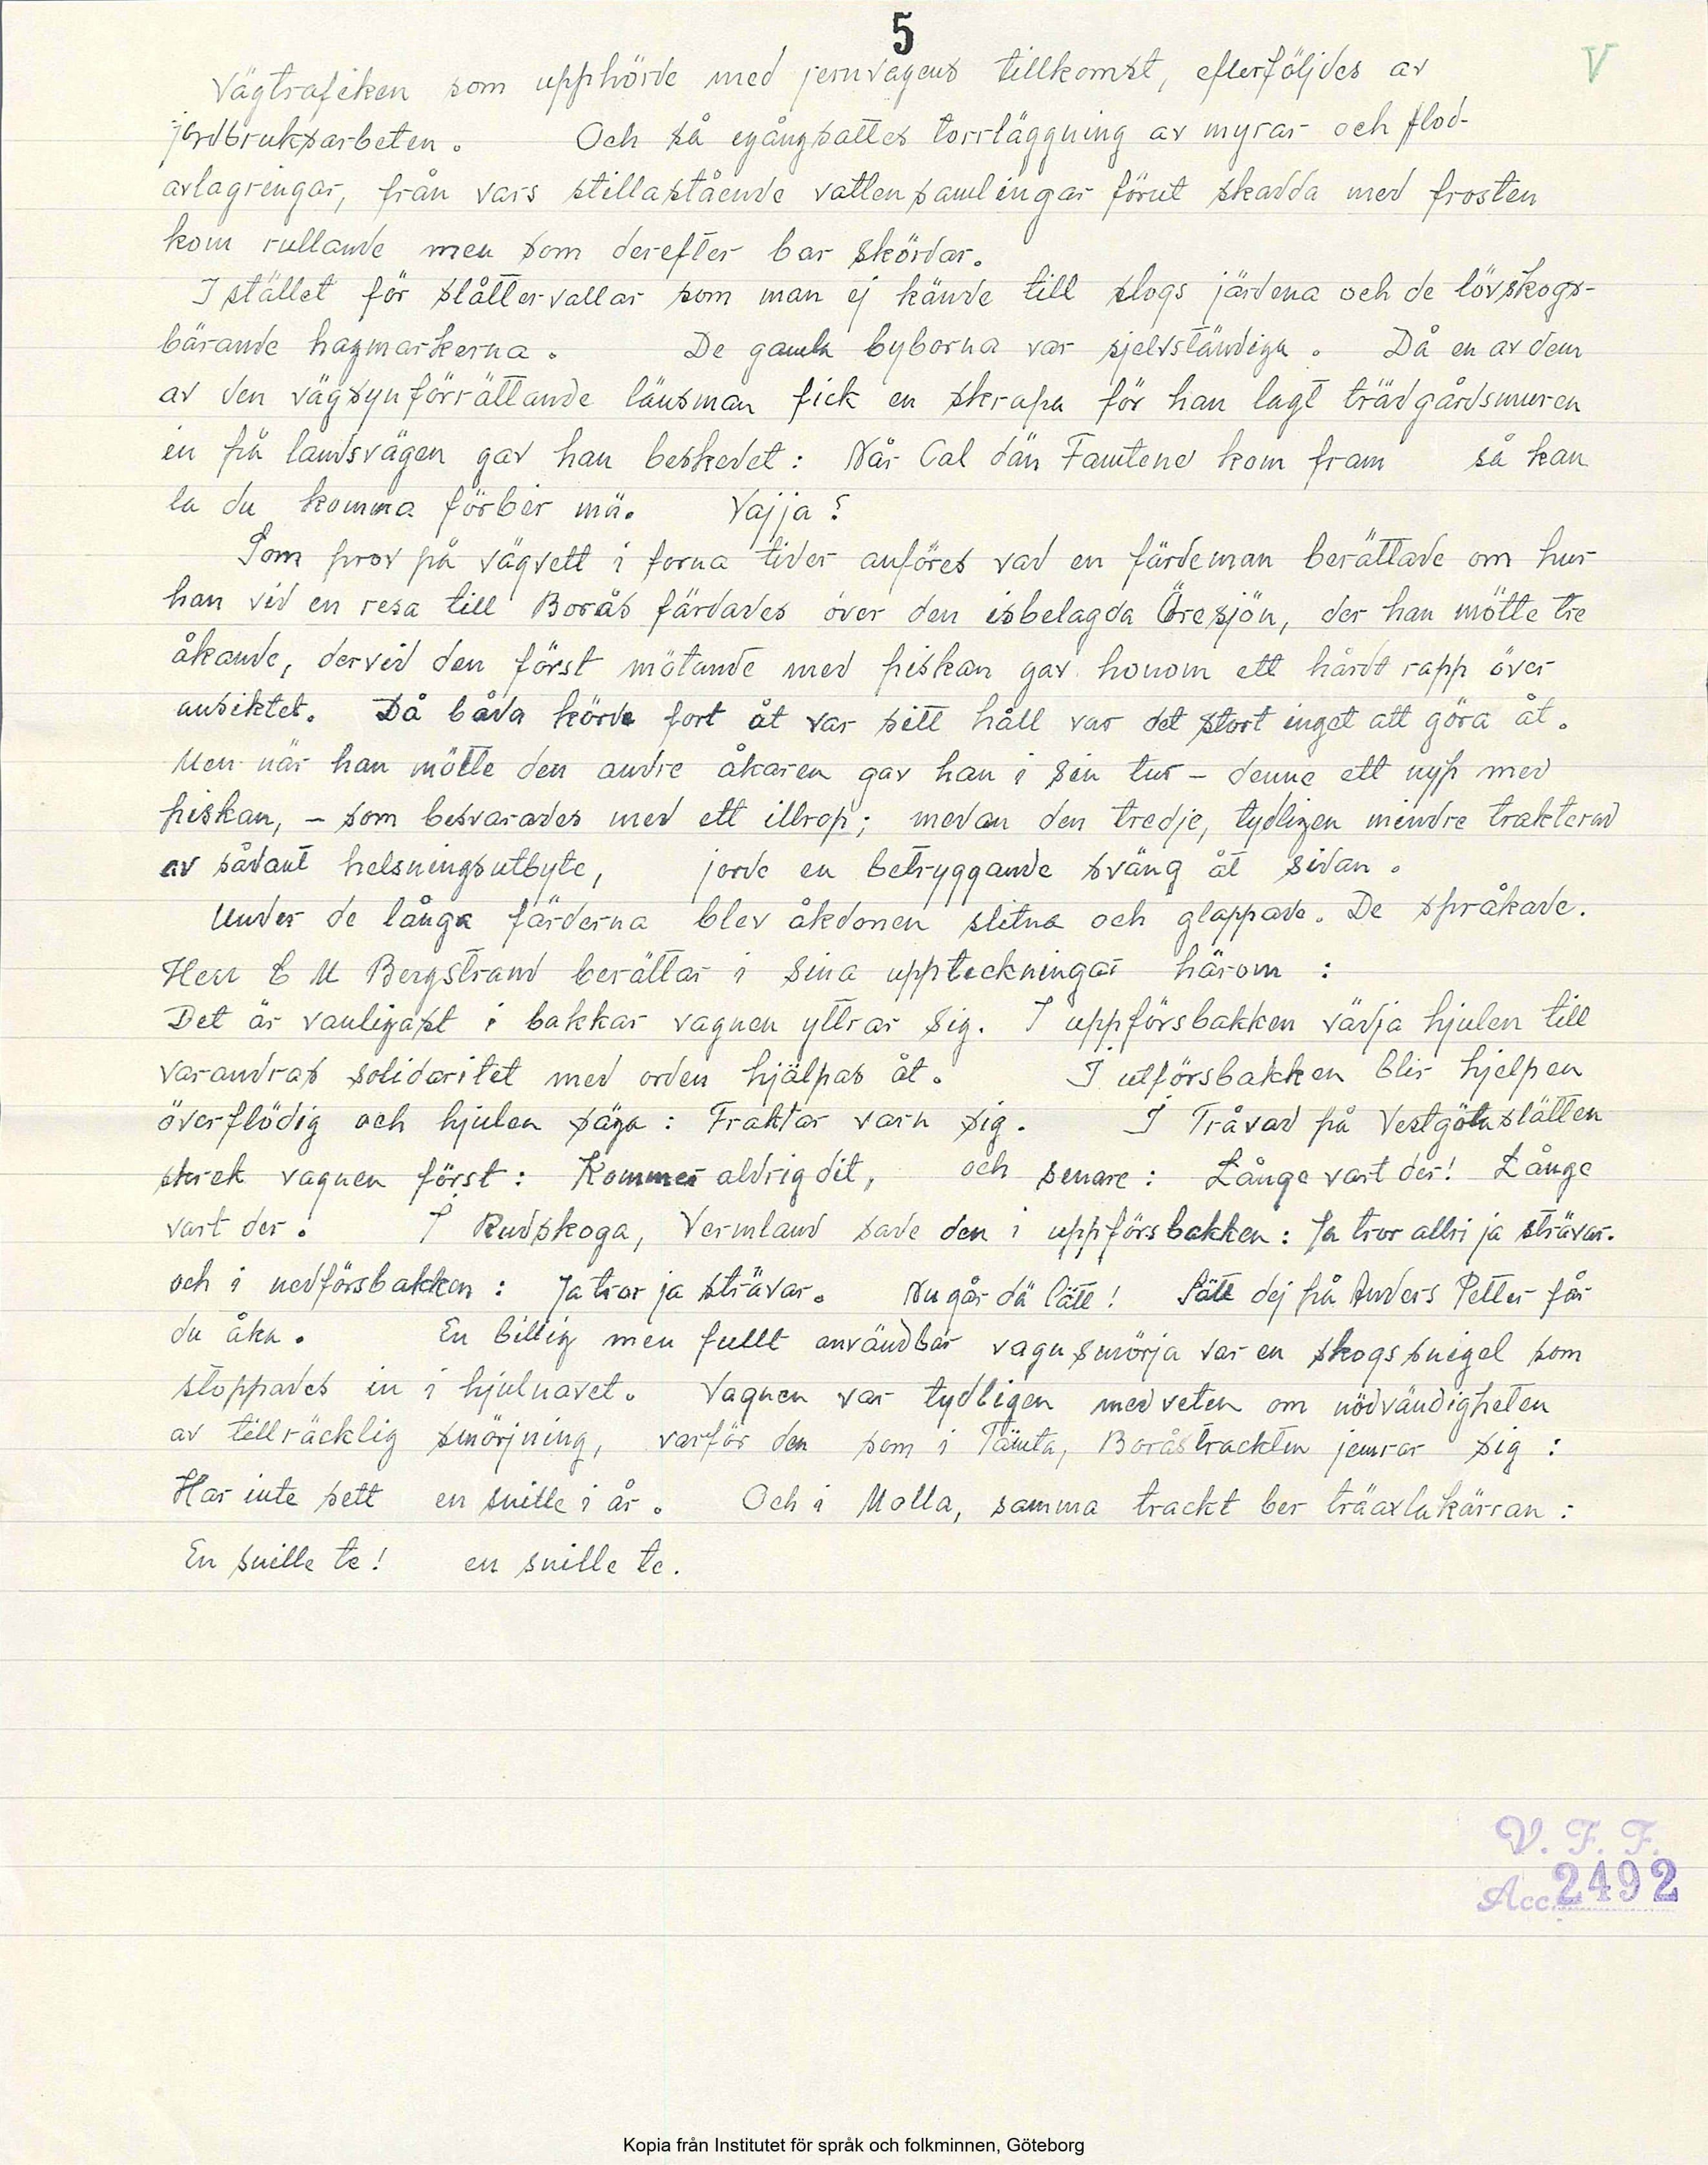 5
V
Vägtrafiken som upphörde med jernvägens tillkomst, efterföljdes av
jordbruksarbeten. Och så egångsattes torrläggning av myrar och flod-
avlagringar, från vars stillastående vattensamlingar förut skadda med frosten
kom rullande men som derefter bar skördar.
I stället för slåttervallar som man ej kände till slogs järdena och de lövskogs-
bärande hagmarkerna. De gamla byborna var sjelvständiga. Då en av dem
av den vägsynförrättande länsman fick en skrapa för han lagt trädgårdsmuren
in på landsvägen gav han beskedet: Når Cal dän Famtene kom fram så kan
la du komma förbir mä. Vajja?
Som prov på vägvett i forna tider anföres vad en färdeman berättade om hur
han vid en resa till Borås färdades över den isbelagda Öresjön, der han mötte tre
åkande, dervid den först mötande med piskan gav honom ett hårdt rapp över
ansiktet. Då båda körde fort åt var sitt håll var det stort inget att göra åt.
Men när han mötte den andre åkaren gav han i sin tur – denne ett nyp med
piskan, – som besvarades med ett illrop; medan den tredje, tydligen mindre trakterad
av sådant helsningsutbyte, jorde en betryggande sväng åt sidan.
Under de långa färderna blev åkdonen slitna och glappade. De språkade.
Herr C M Bergstrand berättar i sina uppteckningar härom :
Det är vanligast i bakkar vagnen yttrar sig. I uppförsbakken vädja hjulen till
varandras solidaritet med orden hjälpas åt. I utförsbakken blir hjelpen
överflödig och hjulen säga : Fraktar varn sig. I Tråvad på Vestgötaslätten
skrek vagnen först : Kommer aldrig dit, och senare : Långe vart der! Långe
vart der. I Rudskoga, Vermland sade den i uppförsbakken : Ja tror allri ja strävar.
och i nedförsbakken : Ja tror ja strävar. Nu går dä lätt! Sätt dej på Anders Petter får
du åka. En billig men fullt användbar vagnsmörja var en skogssnigel som
stoppades in i hjulnavet. Vagnen var tydligen medveten om nödvändigheten
av tillräcklig smörjning, varför den som i Tämta, Boråstrackten jemrar sig :
Har inte sett en snille i år. Och i Molla, samma trackt ber träaxlakärran :
En snille te! en snille te.
V. F. F.
Acc. 2492
Kopia från Institutet för språk och folkminnen, Göteborg